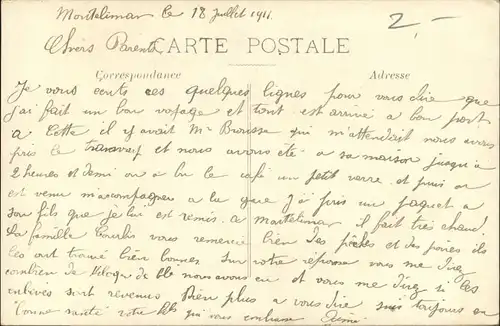 Montelimar le 18 Juillet 1911
2,-
Chers Parents
CARTE POSTALE
Correspondance
Adresse
Je vous ecrits ces quelques lignes pour vous dire que
j'ai fait un bon voyage et tout est arrivé a bon port
a Cette il y avait Mr Brousse qui m'attendait nous avons
pris le et nous avons été a sa maison jusqu'a
2 heures et demi on a bu le café un petit verre et puis on
est venu m'accompagner a la gare j'ai pris un paquet a
son fils que je lui est remis a Montelimar il fait très chaud
la famille vous remercie bien des pêches et des poires ils
les ont trouvé bien bonnes sur votre réponse vous me direz
combien de kilogs de blé nous avons eu et vous me direz si les
enlevés sont revenus Rien plus a vous dire suis toujours en
bonne santé votre fils qui vous embrasse Aimé